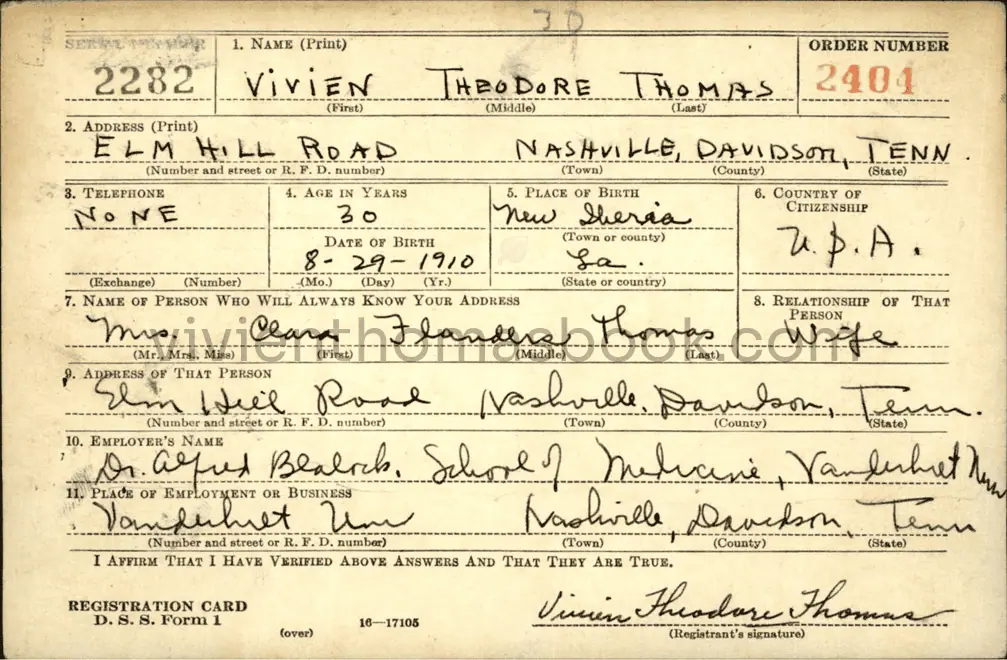 30
SERIAL NUMBER 1. NAME (Print) ORDER NUMBER
2282 VIVIEN THEODORE THOMAS 2404
(First) (Middle) (Last)
2. ADDRESS (Print)
ELM HILL ROAD NASHVILLE, DAVIDSON, TENN.
(Number and street or R. F. D. number) (Town) (County) (State)
3. TELEPHONE 4. AGE IN YEARS 5. PLACE OF BIRTH 6. COUNTRY OF CITIZENSHIP
NONE 30 New Iberia U.S.A.
DATE OF BIRTH (Town or county)
8-29-1910 La.
(Exchange) (Number) (Mo.) (Day) (Yr.) (State or country)
7. NAME OF PERSON WHO WILL ALWAYS KNOW YOUR ADDRESS 8. RELATIONSHIP OF THAT PERSON
Mrs. Clara Flanders Thomas Wife
vivienthomasbook.com
(Mr., Mrs., Miss) (First) (Middle) (Last)
9. ADDRESS OF THAT PERSON
Elm Hill Road Nashville, Davidson, Tenn.
(Number and street or R. F. D. number) (Town) (County) (State)
10. EMPLOYER'S NAME
Dr. Alfred Blalock, School of Medicine, Vanderbilt
11. PLACE OF EMPLOYMENT OR BUSINESS
Vanderbilt Univ Nashville, Davidson, Tenn
(Number and street or R. F. D. number) (Town) (County) (State)
I AFFIRM THAT I HAVE VERIFIED ABOVE ANSWERS AND THAT THEY ARE TRUE.
REGISTRATION CARD
D. S. S. Form 1 (over) 16—17105
Vivien Theodore Thomas
(Registrant's signature)